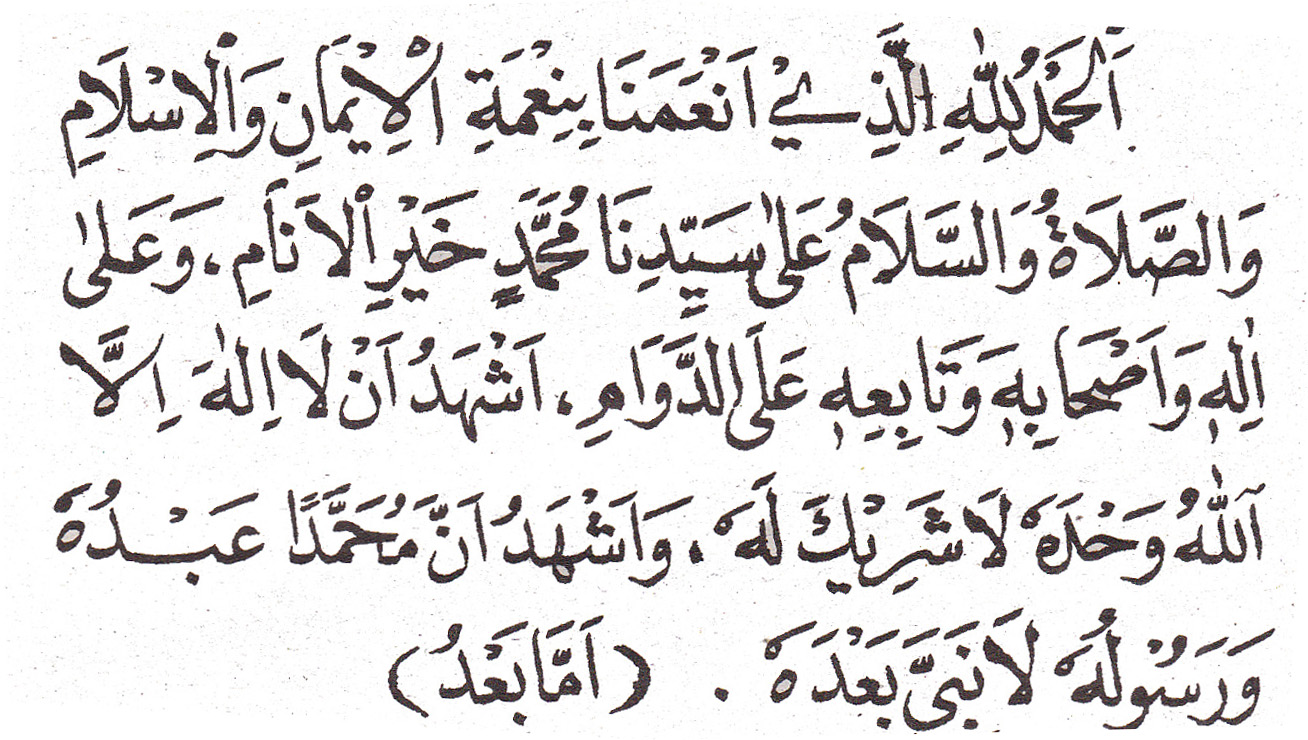 اَلْحَمْدُ لِلّٰهِ الَّذِيْ اَنْعَمَنَا بِنِعْمَةِ الْاِيْمَانِ وَالْاِسْلَامِ
وَالصَّلَاةُ وَالسَّلَامُ عَلٰى سَيِّدِنَا مُحَمَّدٍ خَيْرِ الْاَنَامِ ، وَعَلٰى
اٰلِهٖ وَاَصْحَابِهٖ وَتَابِعِهٖ عَلَى الدَّوَامِ ، اَشْهَدُ اَنْ لَا اِلٰهَ اِلَّا
اللّٰهُ وَحْدَهٗ لَا شَرِيْكَ لَهٗ ، وَاَشْهَدُ اَنَّ مُحَمَّدًا عَبْدُهٗ
وَرَسُوْلُهٗ لَا نَبِيَّ بَعْدَهٗ . ( اَمَّا بَعْدُ )